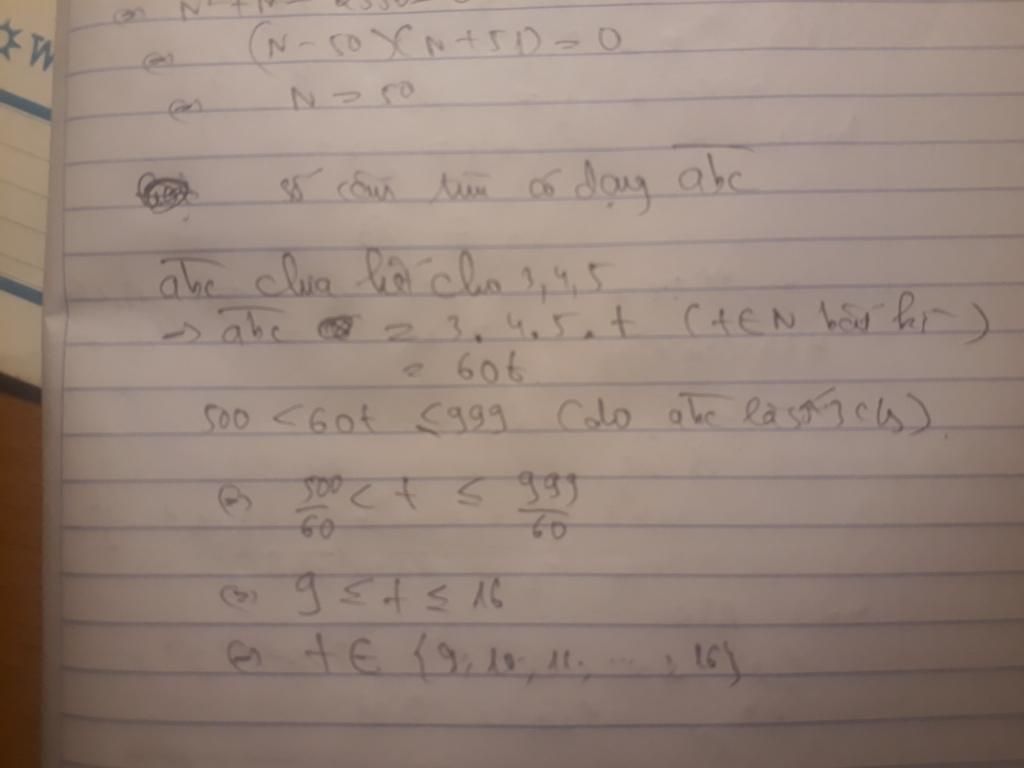 ⇔ N² + N
⇔ (N - 50)(N + 51) = 0
⇔ N = 50
số cần tìm có dạng abc
abc chia hết cho 3,4,5
→ abc = 3.4.5.t (t ∈ N bất kì)
= 60t
500 < 60t ≤ 999 (do abc là số 3 c/s).
⇔ 500/60 < t ≤ 999/60
⇔ 9 ≤ t ≤ 16
⇔ t ∈ {9, 10, 11, ..., 16}